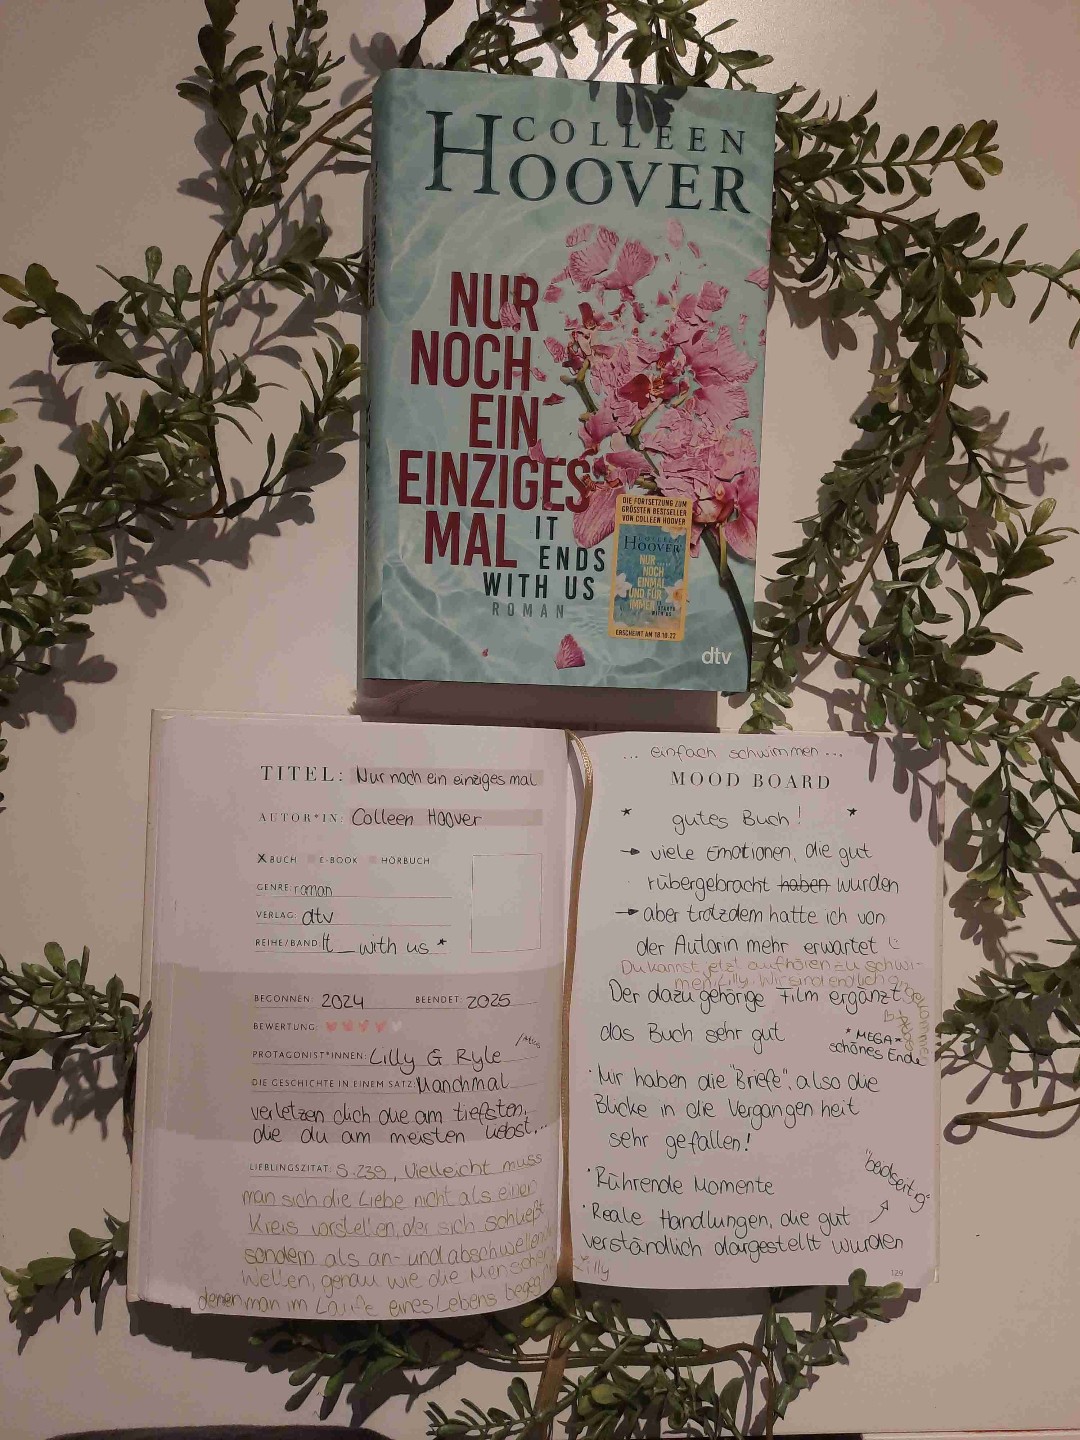 COLLEEN
HOOVER
NUR
NOCH
EIN
EINZIGES
MAL
IT
ENDS
WITH US
ROMAN
DIE FORTSETZUNG ZUM
GRÖSSTEN BESTSELLER
VON COLLEEN HOOVER
COLLEEN
HOOVER
NUR
NOCH
EINMAL
UND FÜR
IMMER
IT STARTS
WITH US
ERSCHEINT AM 18.10.22
dtv
TITEL: Nur noch ein einziges mal
AUTOR*IN: Colleen Hoover
X BUCH E-BOOK HÖRBUCH
GENRE: roman
VERLAG: dtv
REIHE/BAND: It _ with us *
BEGONNEN: 2024 BEENDET: 2025
BEWERTUNG:
PROTAGONIST*INNEN: Lilly & Ryle
DIE GESCHICHTE IN EINEM SATZ: Manchmal
verletzen dich die am tiefsten,
die du am meisten liebst...
LIEBLINGSZITAT: S.239, Vielleicht muss
man sich die Liebe nicht als einen
Kreis vorstellen, der sich schließt
sondern als an- und abschwellende
Wellen, genau wie die Menschen
denen man im Laufe eines Lebens
... einfach schwimmen ...
MOOD BOARD
* gutes Buch! *
→ viele Emotionen, die gut
rübergebracht haben wurden
→ aber trotzdem hatte ich von
der Autorin mehr erwartet
Du kannst jetzt aufhören zu schwi-
men, Lilly. Wir sind endlich angekommen
Der dazugehörige Film ergänzt
das Buch sehr gut
*MEGA*
schönes Ende
· Mir haben die "Briefe", also die
Blicke in die Vergangenheit
sehr gefallen!
· Rührende Momente
"beidseitig"
· Reale Handlungen, die gut
verständlich dargestellt wurden
Lilly
129